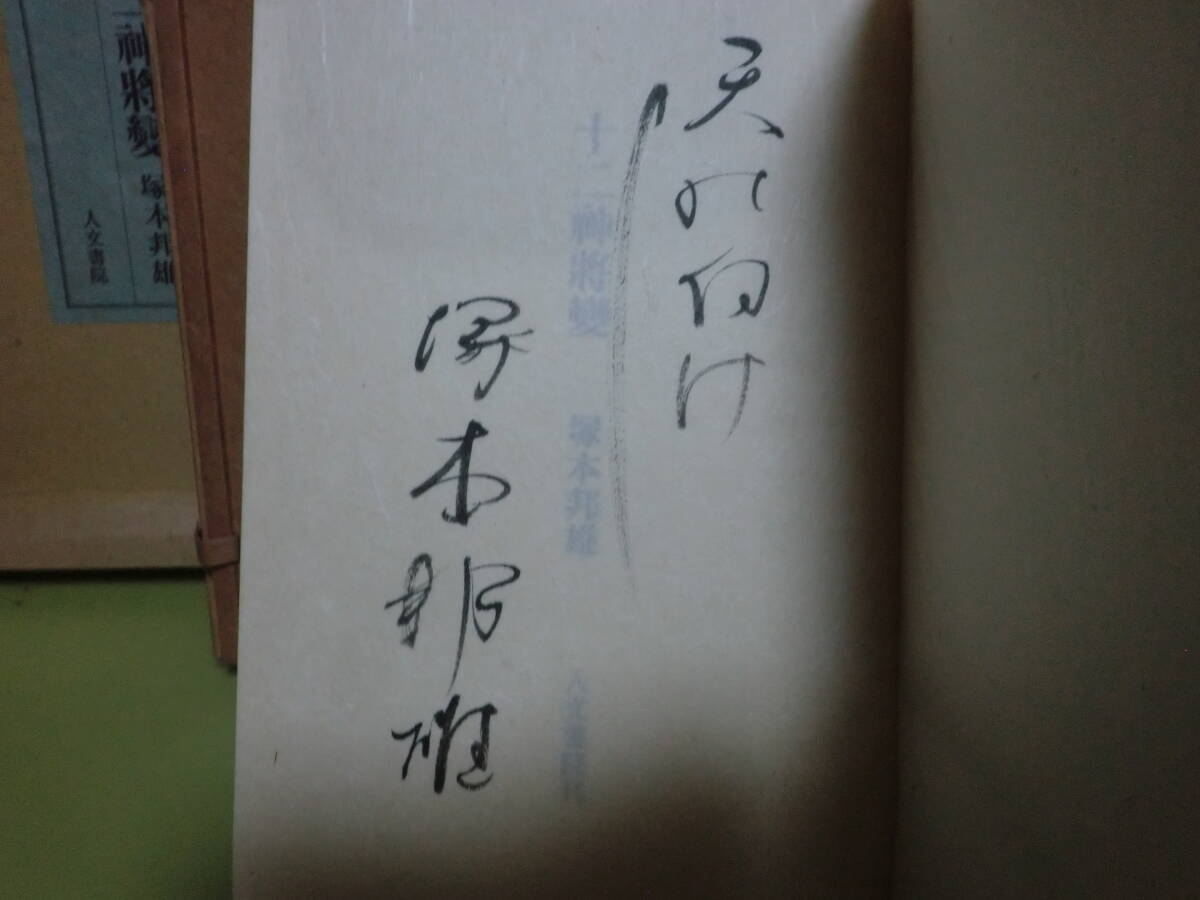 天の
け
し
十二神將變 塚本邦雄 人文書院
塚本邦雄
神將變 塚本邦雄
人文書院